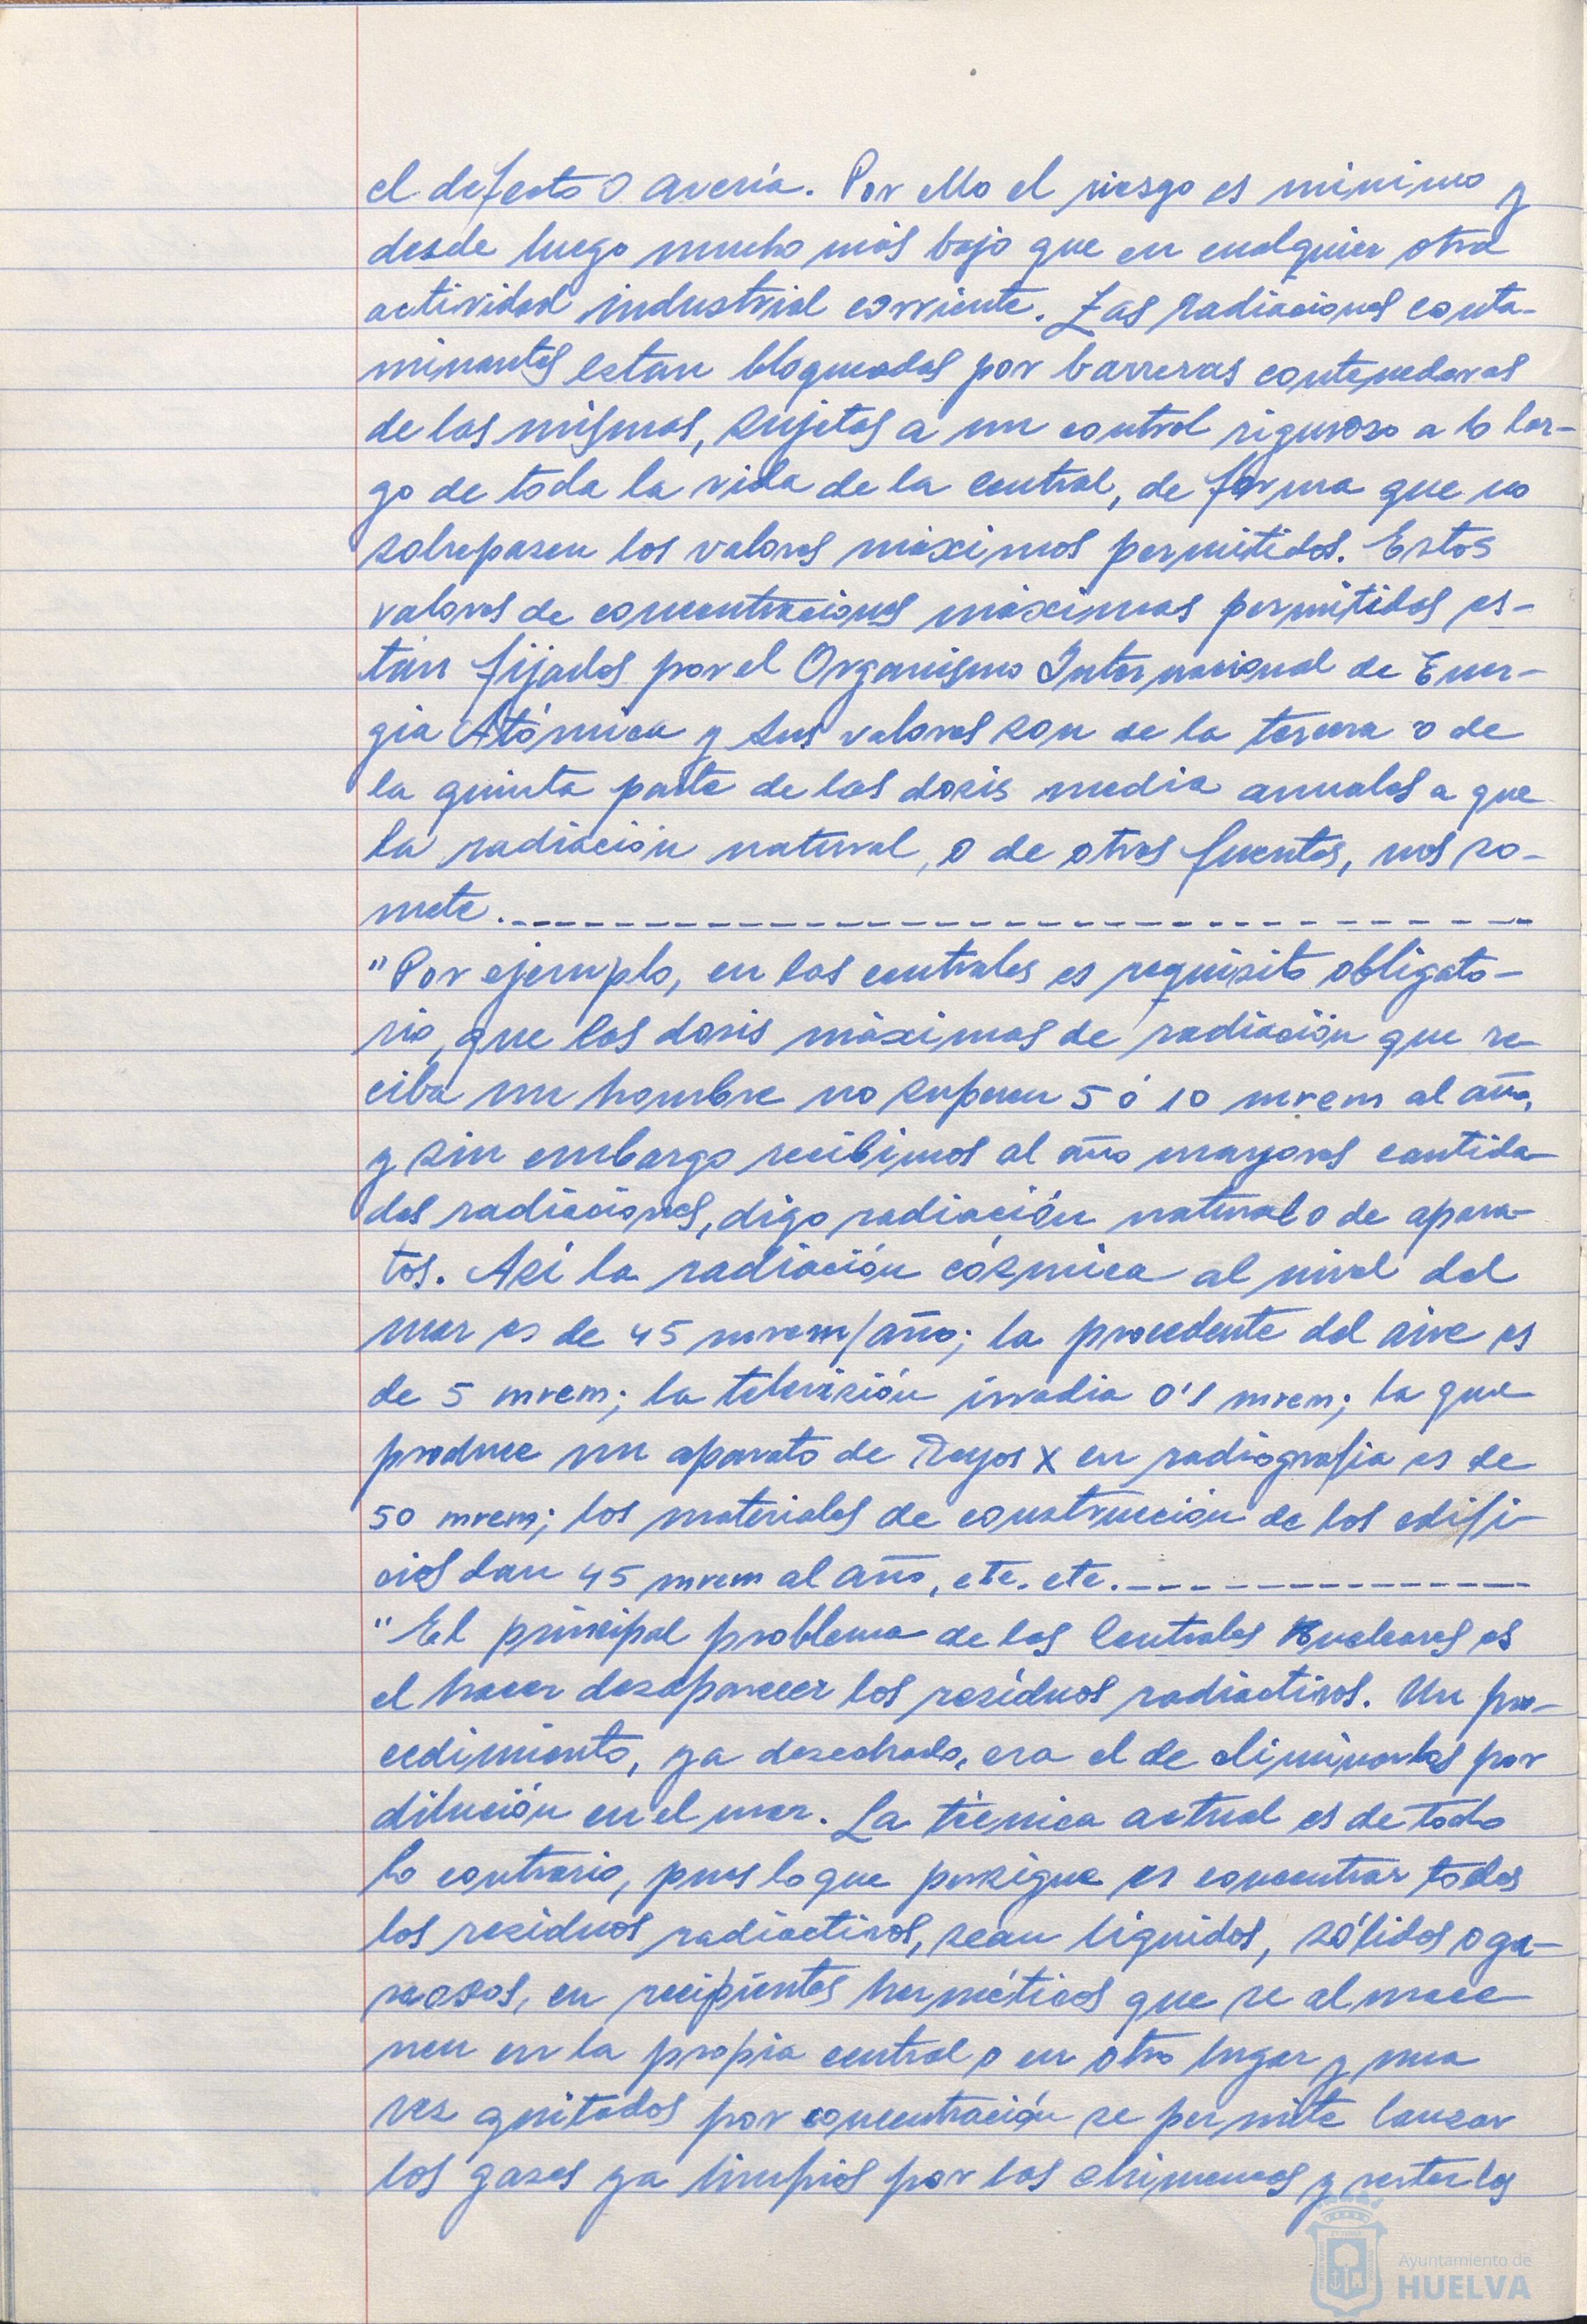 el defecto o avería. Por ello el riesgo es mínimo y
desde luego mucho más bajo que en cualquier otra
actividad industrial corriente. Las radiaciones conta-
minantes estan bloqueadas por barreras contenedoras
de las mismas, sujetas a un control riguroso a lo lar-
go de toda la vida de la central, de forma que no
sobrepasen los valores máximos permitidos. Estos
valores de concentraciones máximas permitidas es-
tán fijados por el Organismo Internacional de Ener-
gia Atómica y sus valores son de la tercera o de
la quinta parte de las dosis media anuales a que
la radiación natural, o de otras fuentes, nos so-
mete.
"Por ejemplo, en las centrales es requisito obligato-
rio, que las dosis máximas de radiación que re-
ciba un hombre no superen 5 ó 10 mrem al año,
y sin embargo recibimos al año mayores cantida-
des radiaciones, digo radiación natural o de apara-
tos. Así la radiación cósmica al nivel del
mar es de 45 mrem/año; la procedente del aire es
de 5 mrem; la televisión irradia 0'1 mrem; la que
produce un aparato de Rayos X en radiografia es de
50 mrem; los materiales de construcción de los edifi-
cios dan 45 mrem al año, etc. etc.
"El principal problema de las Centrales Nucleares es
el hacer desaparecer los resíduos radiactivos. Un pro-
cedimiento, ya desechado, era el de eliminarlos por
dilución en el mar. La técnica actual es de todo
lo contrario, pues lo que persigue es concentrar todos
los residuos radiactivos, sean líquidos, sólidos o ga-
seosos, en recipientes herméticos que se almace-
nen en la propia central o en otro lugar y una
vez quitados por concentración se permite lanzar
los gases ya limpios por las chimeneas y verter los
Ayuntamiento de
HUELVA